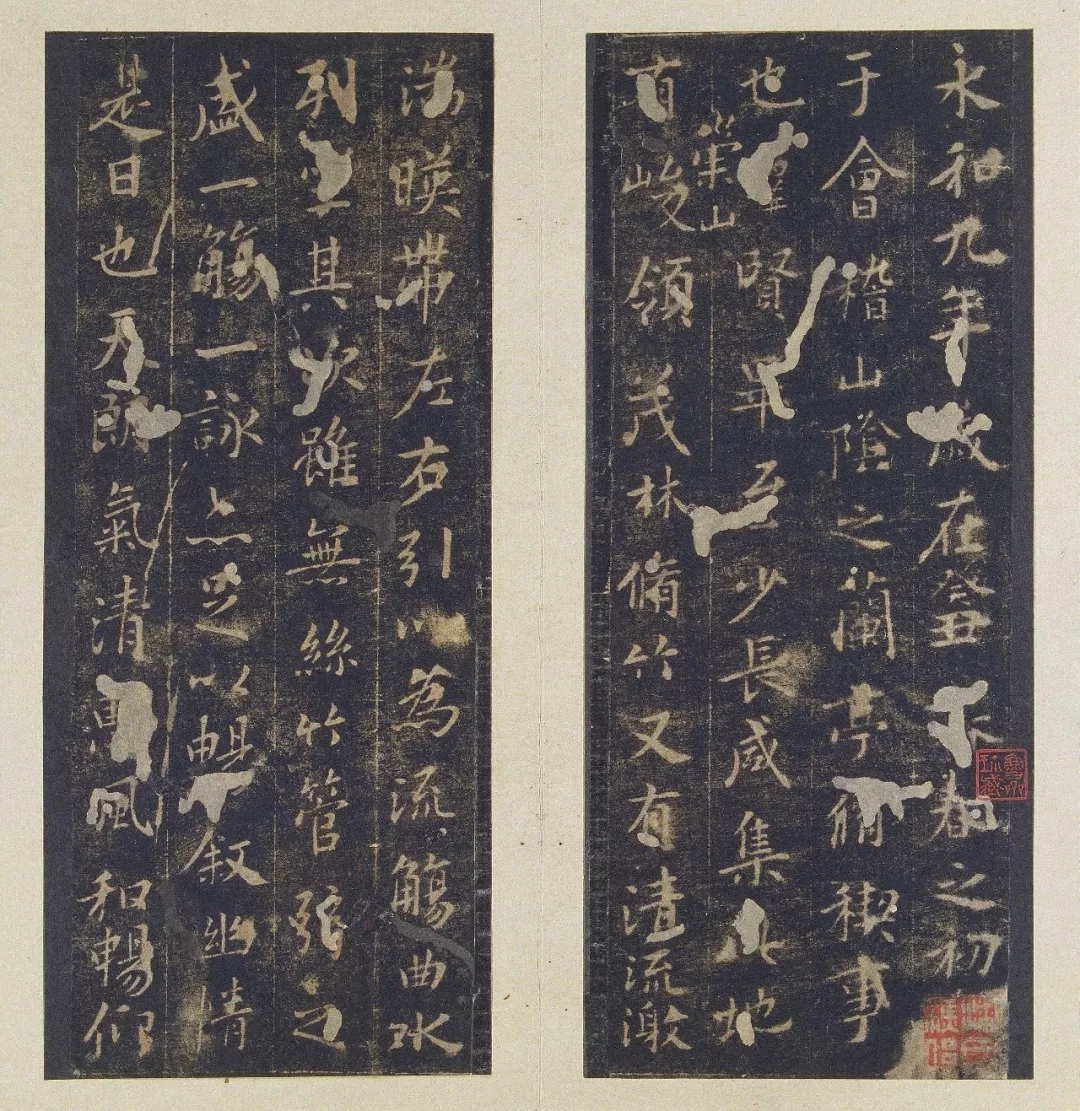 永和九年歲在癸丑暮春之初
于會稽山陰之蘭亭脩稧事
也群賢畢至少長咸集此地
崇山
有峻領茂林脩竹又有清流激
湍暎帶左右引以為流觴曲水
列坐其次雖無絲竹管弦之
盛一觴一詠亦足以暢敘幽情
是日也天朗氣清惠風和暢仰